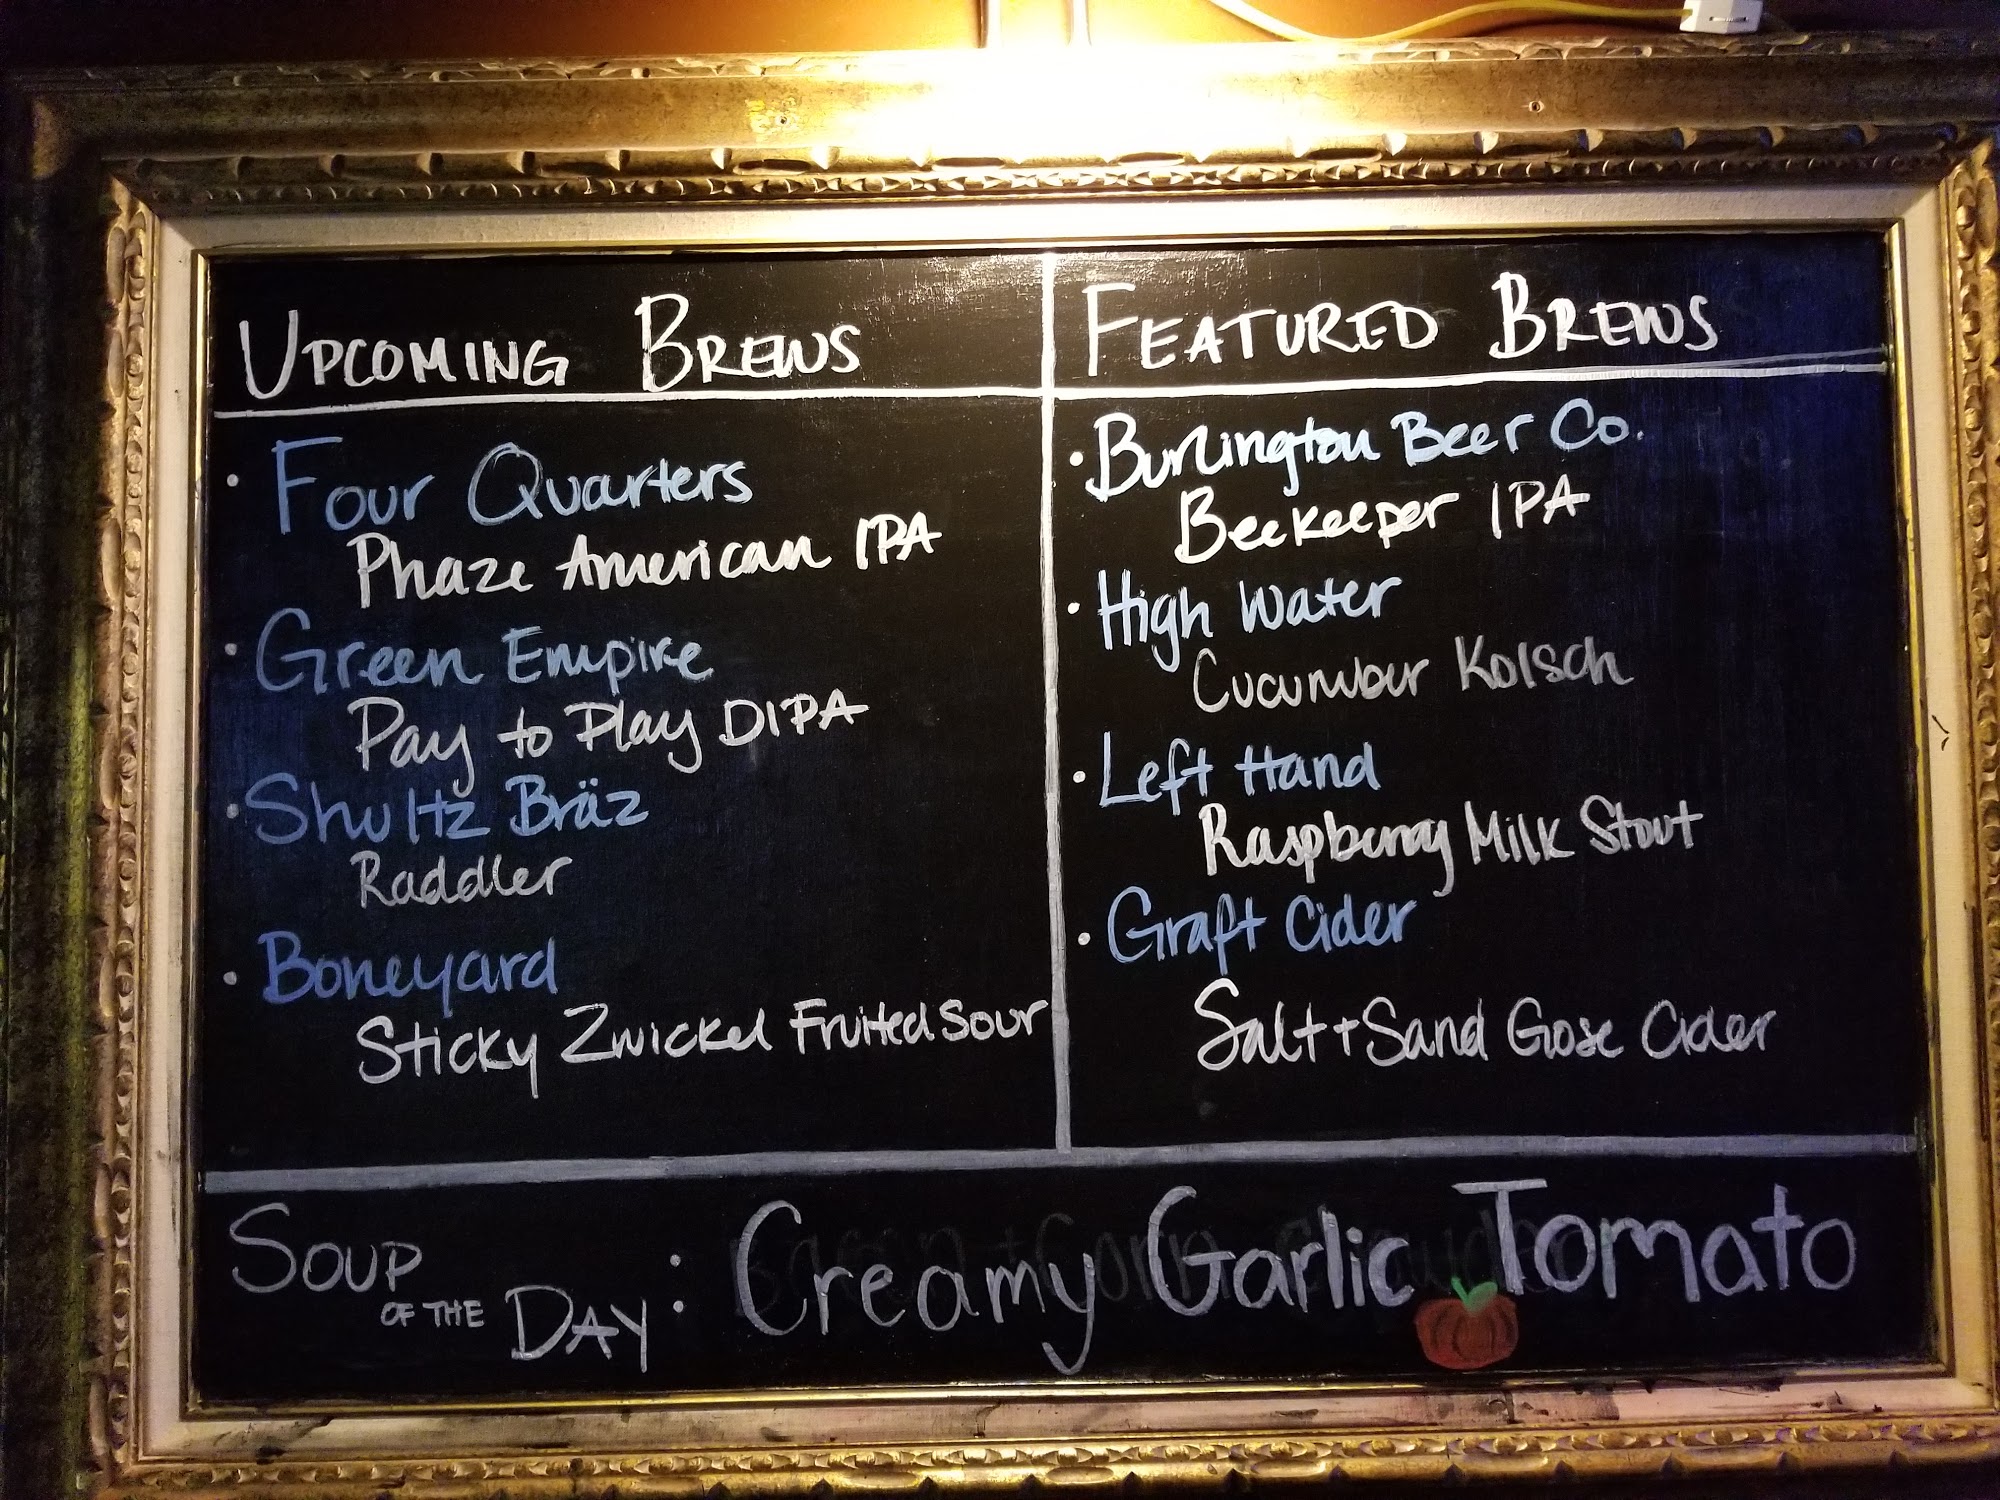 UPCOMING BREWS
• Four Quarters
Phaze American IPA
• Green Empire
Pay to Play DIPA
• Shultz Bräz
Raddler
• Boneyard
Sticky Zwickel Fruited Sour
FEATURED BREWS
• Burlington Beer Co.
Beekeeper IPA
• High Water
Cucumber Kolsch
• Left Hand
Raspberry Milk Stout
• Graft Cider
Salt + Sand Gose Cider
SOUP OF THE DAY: Creamy Garlic Tomato